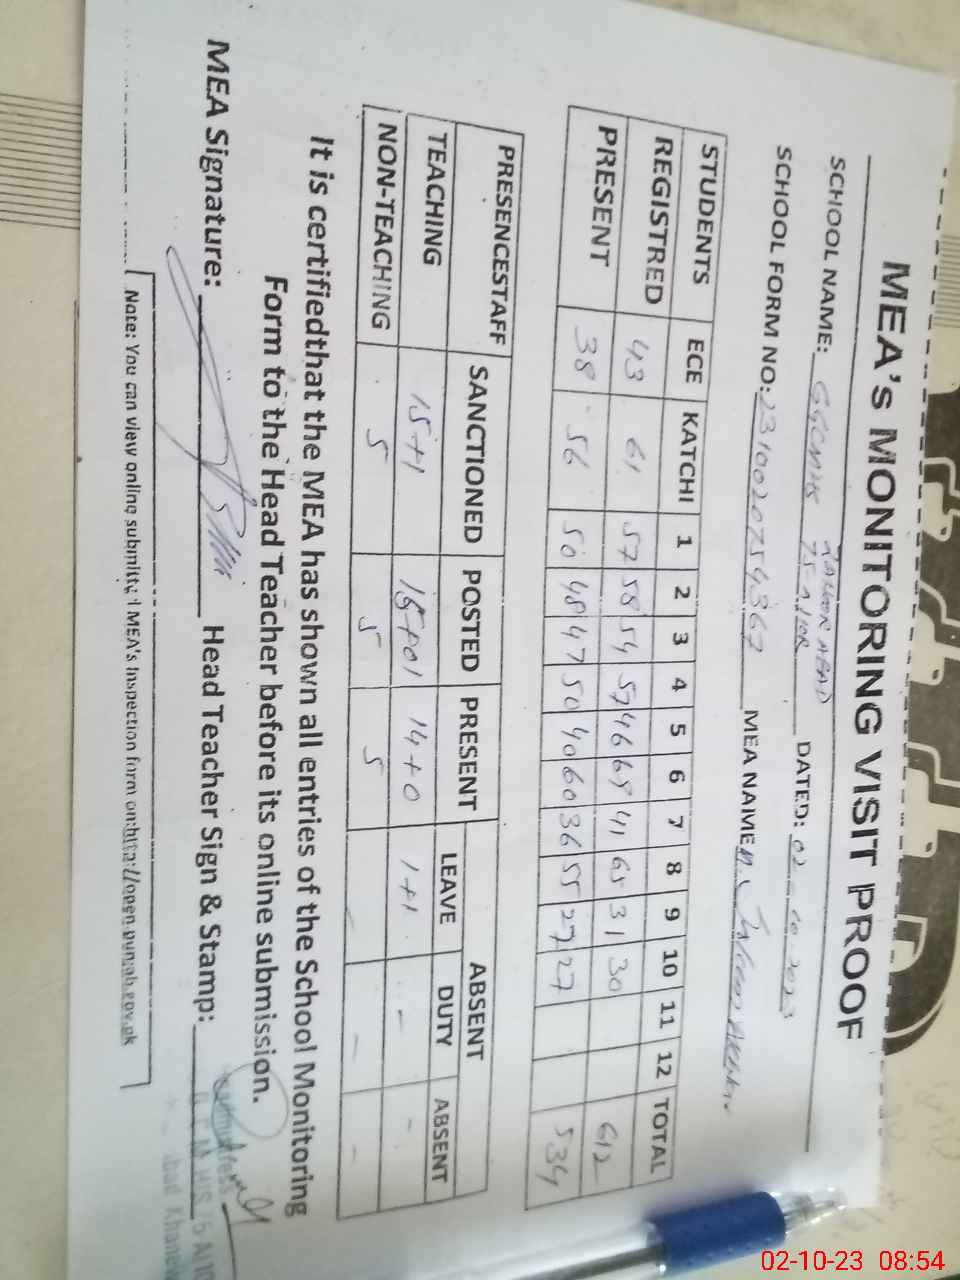 MEA's MONITORING VISIT PROOF
ZAHOOR ABAD
SCHOOL NAME: GGCMHS 75-A/10R DATED: 02-10-2023
SCHOOL FORM NO: 23100207754367 MEA NAME Akhtar
STUDENTS ECE KATCHI 1 2 3 4 5 6 7 8 9 10 11 12 TOTAL
REGISTRED 43 61 57 58 54 57 46 69 41 65 31 30 612
PRESENT 38 56 50 48 47 50 40 60 36 55 27 27 534
PRESENCESTAFF SANCTIONED POSTED PRESENT ABSENT
LEAVE DUTY ABSENT
TEACHING 15+1 15+01 14+0 1+1 - -
NON-TEACHING 5 5 5 - - -
It is certifiedthat the MEA has shown all entries of the School Monitoring
Form to the Head Teacher before its online submission.
MEA Signature: Head Teacher Sign & Stamp:
Note: You can view online submitted MEA's Inspection form on:http://open.punjab.gov.pk
02-10-23 08:54